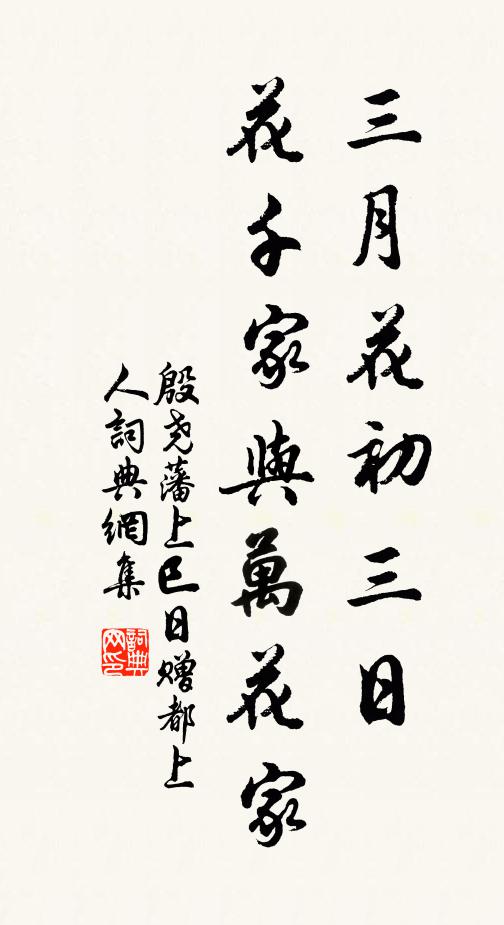 三月花初三日
花千家與萬花家
殷尧藩上巳日赠都上
人詞典網集
詞典网印